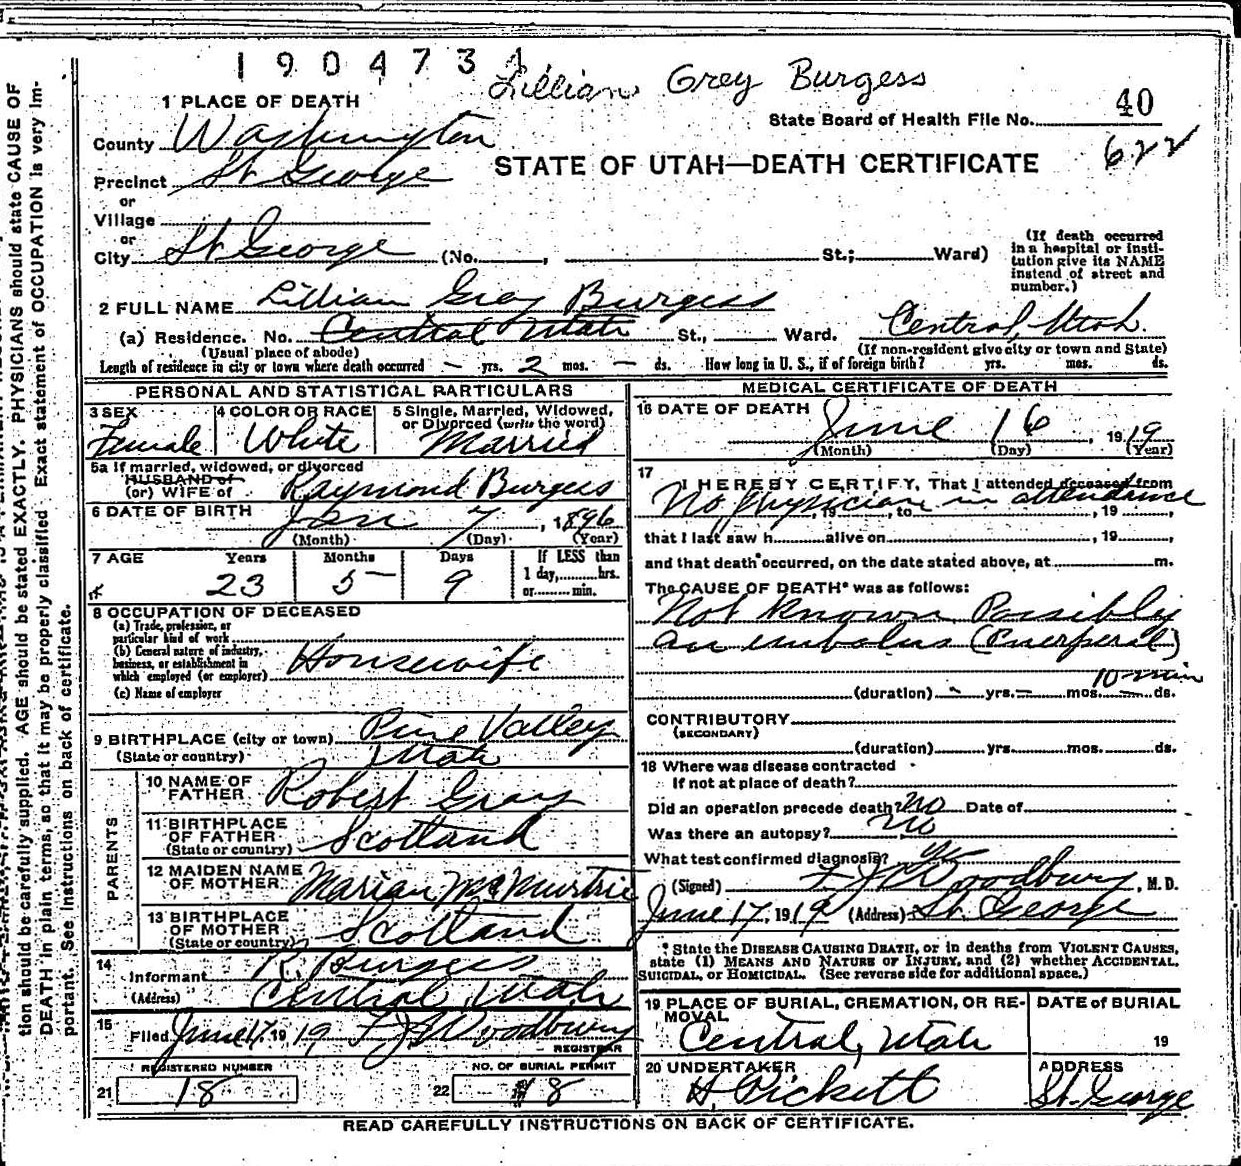 1904731
Lillian Grey Burgess
40
State Board of Health File No.
622
STATE OF UTAH—DEATH CERTIFICATE
1 PLACE OF DEATH
County Washington
Precinct St George
or
Village
or
City St George (No. , St.; Ward)
(If death occurred
in a hospital or insti-
tution give its NAME
instead of street and
number.)
2 FULL NAME Lillian Gray Burgess
(a) Residence. No. Central Utah St., Ward. Central, Utah
(Usual place of abode)
(If non-resident give city or town and State)
Length of residence in city or town where death occurred – yrs. 2 mos. – ds. How long in U. S., if of foreign birth? yrs. mos. ds.
PERSONAL AND STATISTICAL PARTICULARS
3 SEX
Female
4 COLOR OR RACE
White
5 Single, Married, Widowed,
or Divorced (write the word)
Married
5a If married, widowed, or divorced
HUSBAND of
(or) WIFE of Raymond Burgess
6 DATE OF BIRTH Jan 7, 1896
(Month) (Day) (Year)
7 AGE Years Months Days If LESS than
1 day, hrs.
or min.
23 5 9
8 OCCUPATION OF DECEASED
(a) Trade, profession, or
particular kind of work
(b) General nature of industry,
business, or establishment in
which employed (or employer) Housewife
(c) Name of employer
9 BIRTHPLACE (city or town) Pine Valley
(State or country) Utah
PARENTS
10 NAME OF
FATHER Robert Gray
11 BIRTHPLACE
OF FATHER
(State or country) Scotland
12 MAIDEN NAME
OF MOTHER Marian McMurtrie
13 BIRTHPLACE
OF MOTHER
(State or country) Scotland
14
Informant R. Burgess
(Address) Central, Utah
15
Filed June 17, 1919, F J Woodbury
REGISTRAR
REGISTERED NUMBER
21 18
NO. OF BURIAL PERMIT
22 18
MEDICAL CERTIFICATE OF DEATH
16 DATE OF DEATH June 16, 1919
(Month) (Day) (Year)
17
I HEREBY CERTIFY, That I attended deceased from
No physician in attendance
, 19 , to , 19 ,
that I last saw h alive on , 19 ,
and that death occurred, on the date stated above, at m.
The CAUSE OF DEATH* was as follows:
Not known Possibly
an embolus (Puerperal)
10 min
(duration) – yrs. – mos. – ds.
CONTRIBUTORY
(SECONDARY)
(duration) yrs. mos. ds.
18 Where was disease contracted
If not at place of death?
Did an operation precede death? No Date of
Was there an autopsy? No
What test confirmed diagnosis?
(Signed) F J Woodbury, M. D.
June 17, 1919 (Address) St. George
* State the DISEASE CAUSING DEATH, or in deaths from VIOLENT CAUSES,
state (1) MEANS AND NATURE OF INJURY, and (2) whether ACCIDENTAL,
SUICIDAL, or HOMICIDAL. (See reverse side for additional space.)
19 PLACE OF BURIAL, CREMATION, OR RE-
MOVAL
Central, Utah
DATE of BURIAL
19
20 UNDERTAKER
H. Pickett
ADDRESS
St. George
READ CAREFULLY INSTRUCTIONS ON BACK OF CERTIFICATE.
tion should be carefully supplied. AGE should be stated EXACTLY. PHYSICIANS should state CAUSE OF
DEATH in plain terms, so that it may be properly classified. Exact statement of OCCUPATION is very im-
portant. See instructions on back of certificate.